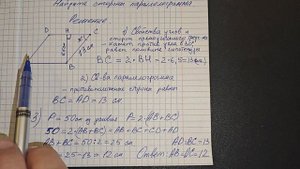 Найдите стороны параллелограмма
Решение
1) Свойства углов и
сторон прямоугольного
катет, против угла в 30°
равен половине гипотенузы
BC = 2·BH = 2·6,5 = 13 см
2) Св-ва параллелограмма
- противоположные стороны равны
BC = AD = 13 см.
3) P = 50 см по условию P = 2·(AB+BC)
50 = 2·(AB+BC) = AB + BC + CD + AD
AB + BC = 50:2 = 25 см AD=BC=13
= 25 - 13 = 12 см. Ответ: AB=12